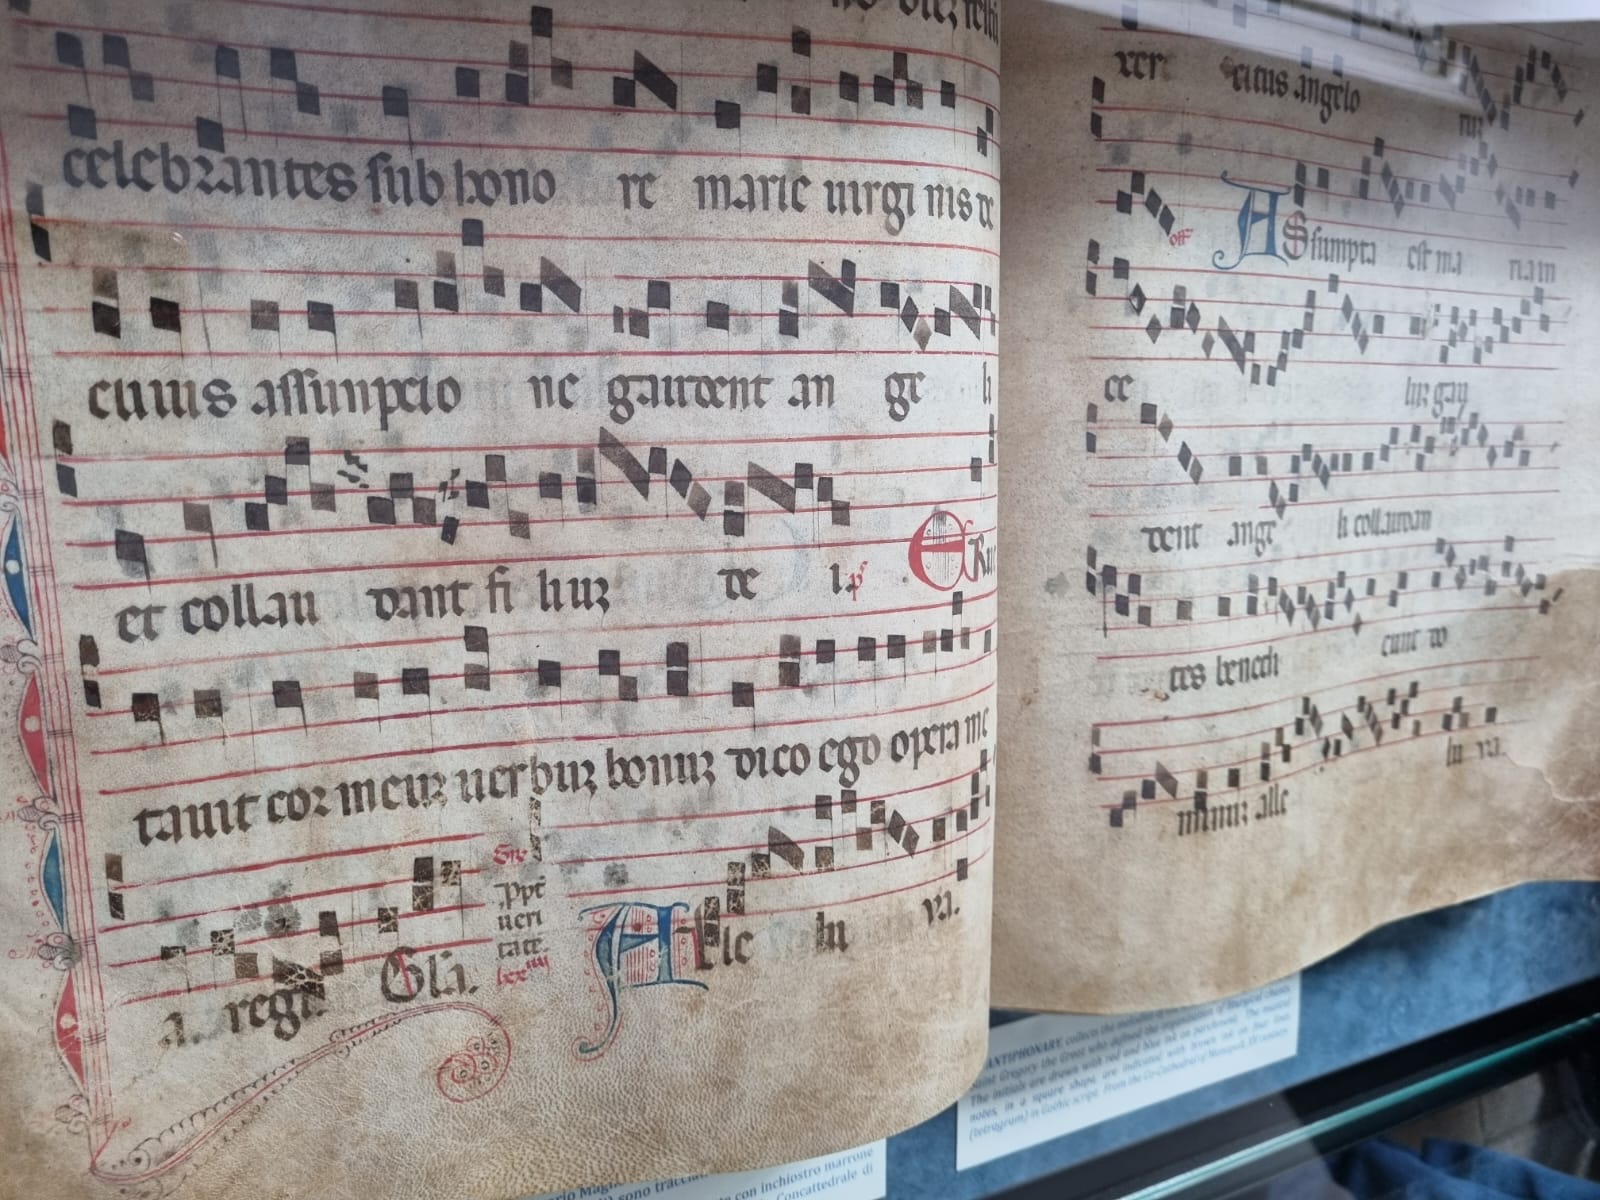 celebrantes sub hono re marie uirgi nis de
cuius assumpcio ne gaudent an ge li
et collau dant fi liuz de i. ps ERuc
tauit cor meuz uerbuz bonuz dico ego opera me
a. regi. Gl'a. Gre
ppt
ueri
tate.
lxiiii
Alle lu ya.
xer citus angelo
ruz
off ASsumpta est ma ria in
ce luz gau
dent ange li collaudan
tes benedi cunt do
minuz alle lu ya.
ANTIPHONARY, collects the
Saint Gregory the Great who defined the organization of liturgical chants.
The initials are drawn with red and blue ink on parchment. The musical
notes, in a square shape, are indicated with brown ink on four lines
(tetragram) in Gothic script. From the Co-Cathedral of
sono tracciate con inchiostro marrone
Concattedrale di